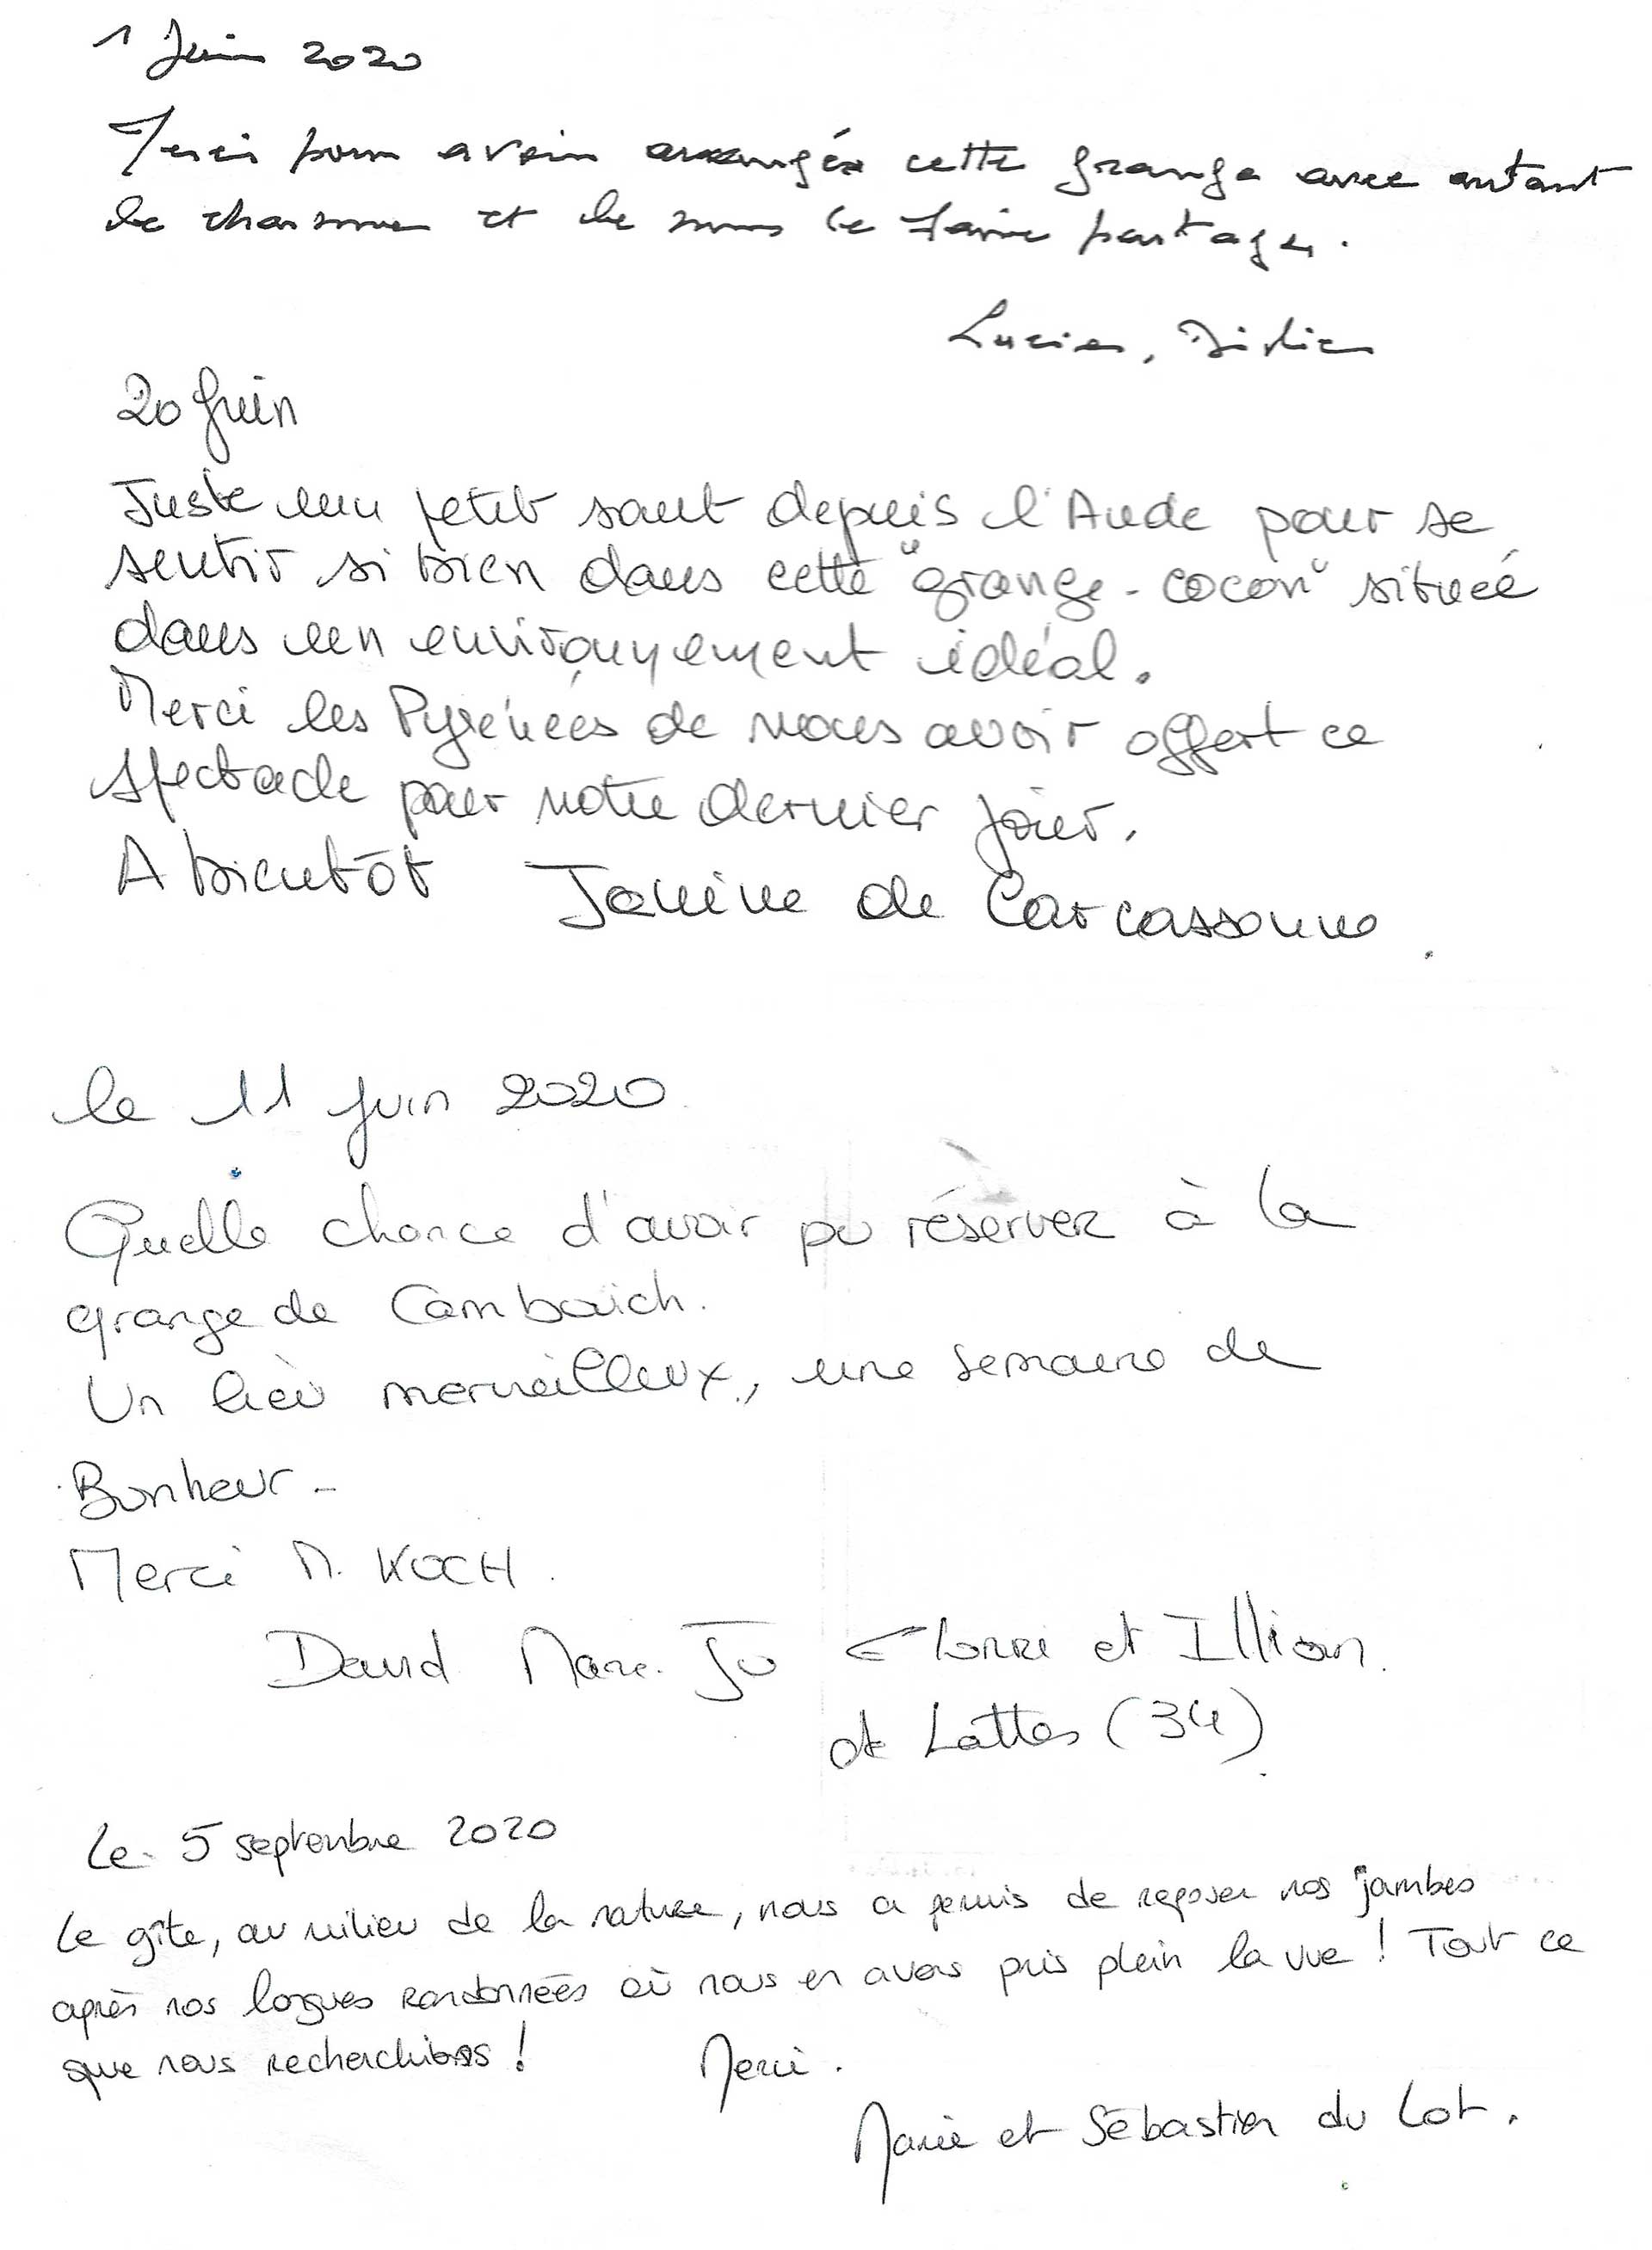 1 Juin 2020
Merci pour avoir arrangée cette grange avec autant
de charme et de nous le faire partager.
Lucien, Didier
20 Juin
Juste un petit saut depuis l'Aude pour se
sentir si bien dans cette "grange-cocon" située
dans un environnement idéal.
Merci les Pyrénées de nous avoir offert ce
spectacle pour notre dernier jour.
A bientôt Janine de Carcassonne.
le 11 juin 2020
Quelle chance d'avoir pu réserver à la
grange de Cambaich.
Un lieu merveilleux, une semaine de
Bonheur -
Merci M. KOCH.
David Marie-Jo et Illian.
de Lattes (34)
Le 5 septembre 2020
Le gîte, au milieu de la nature, nous a permis de reposer nos jambes
après nos longues randonnées où nous en avons pris plein la vue ! Tout ce
que nous recherchions !
Merci.
Marie et Sébastien du Lot.